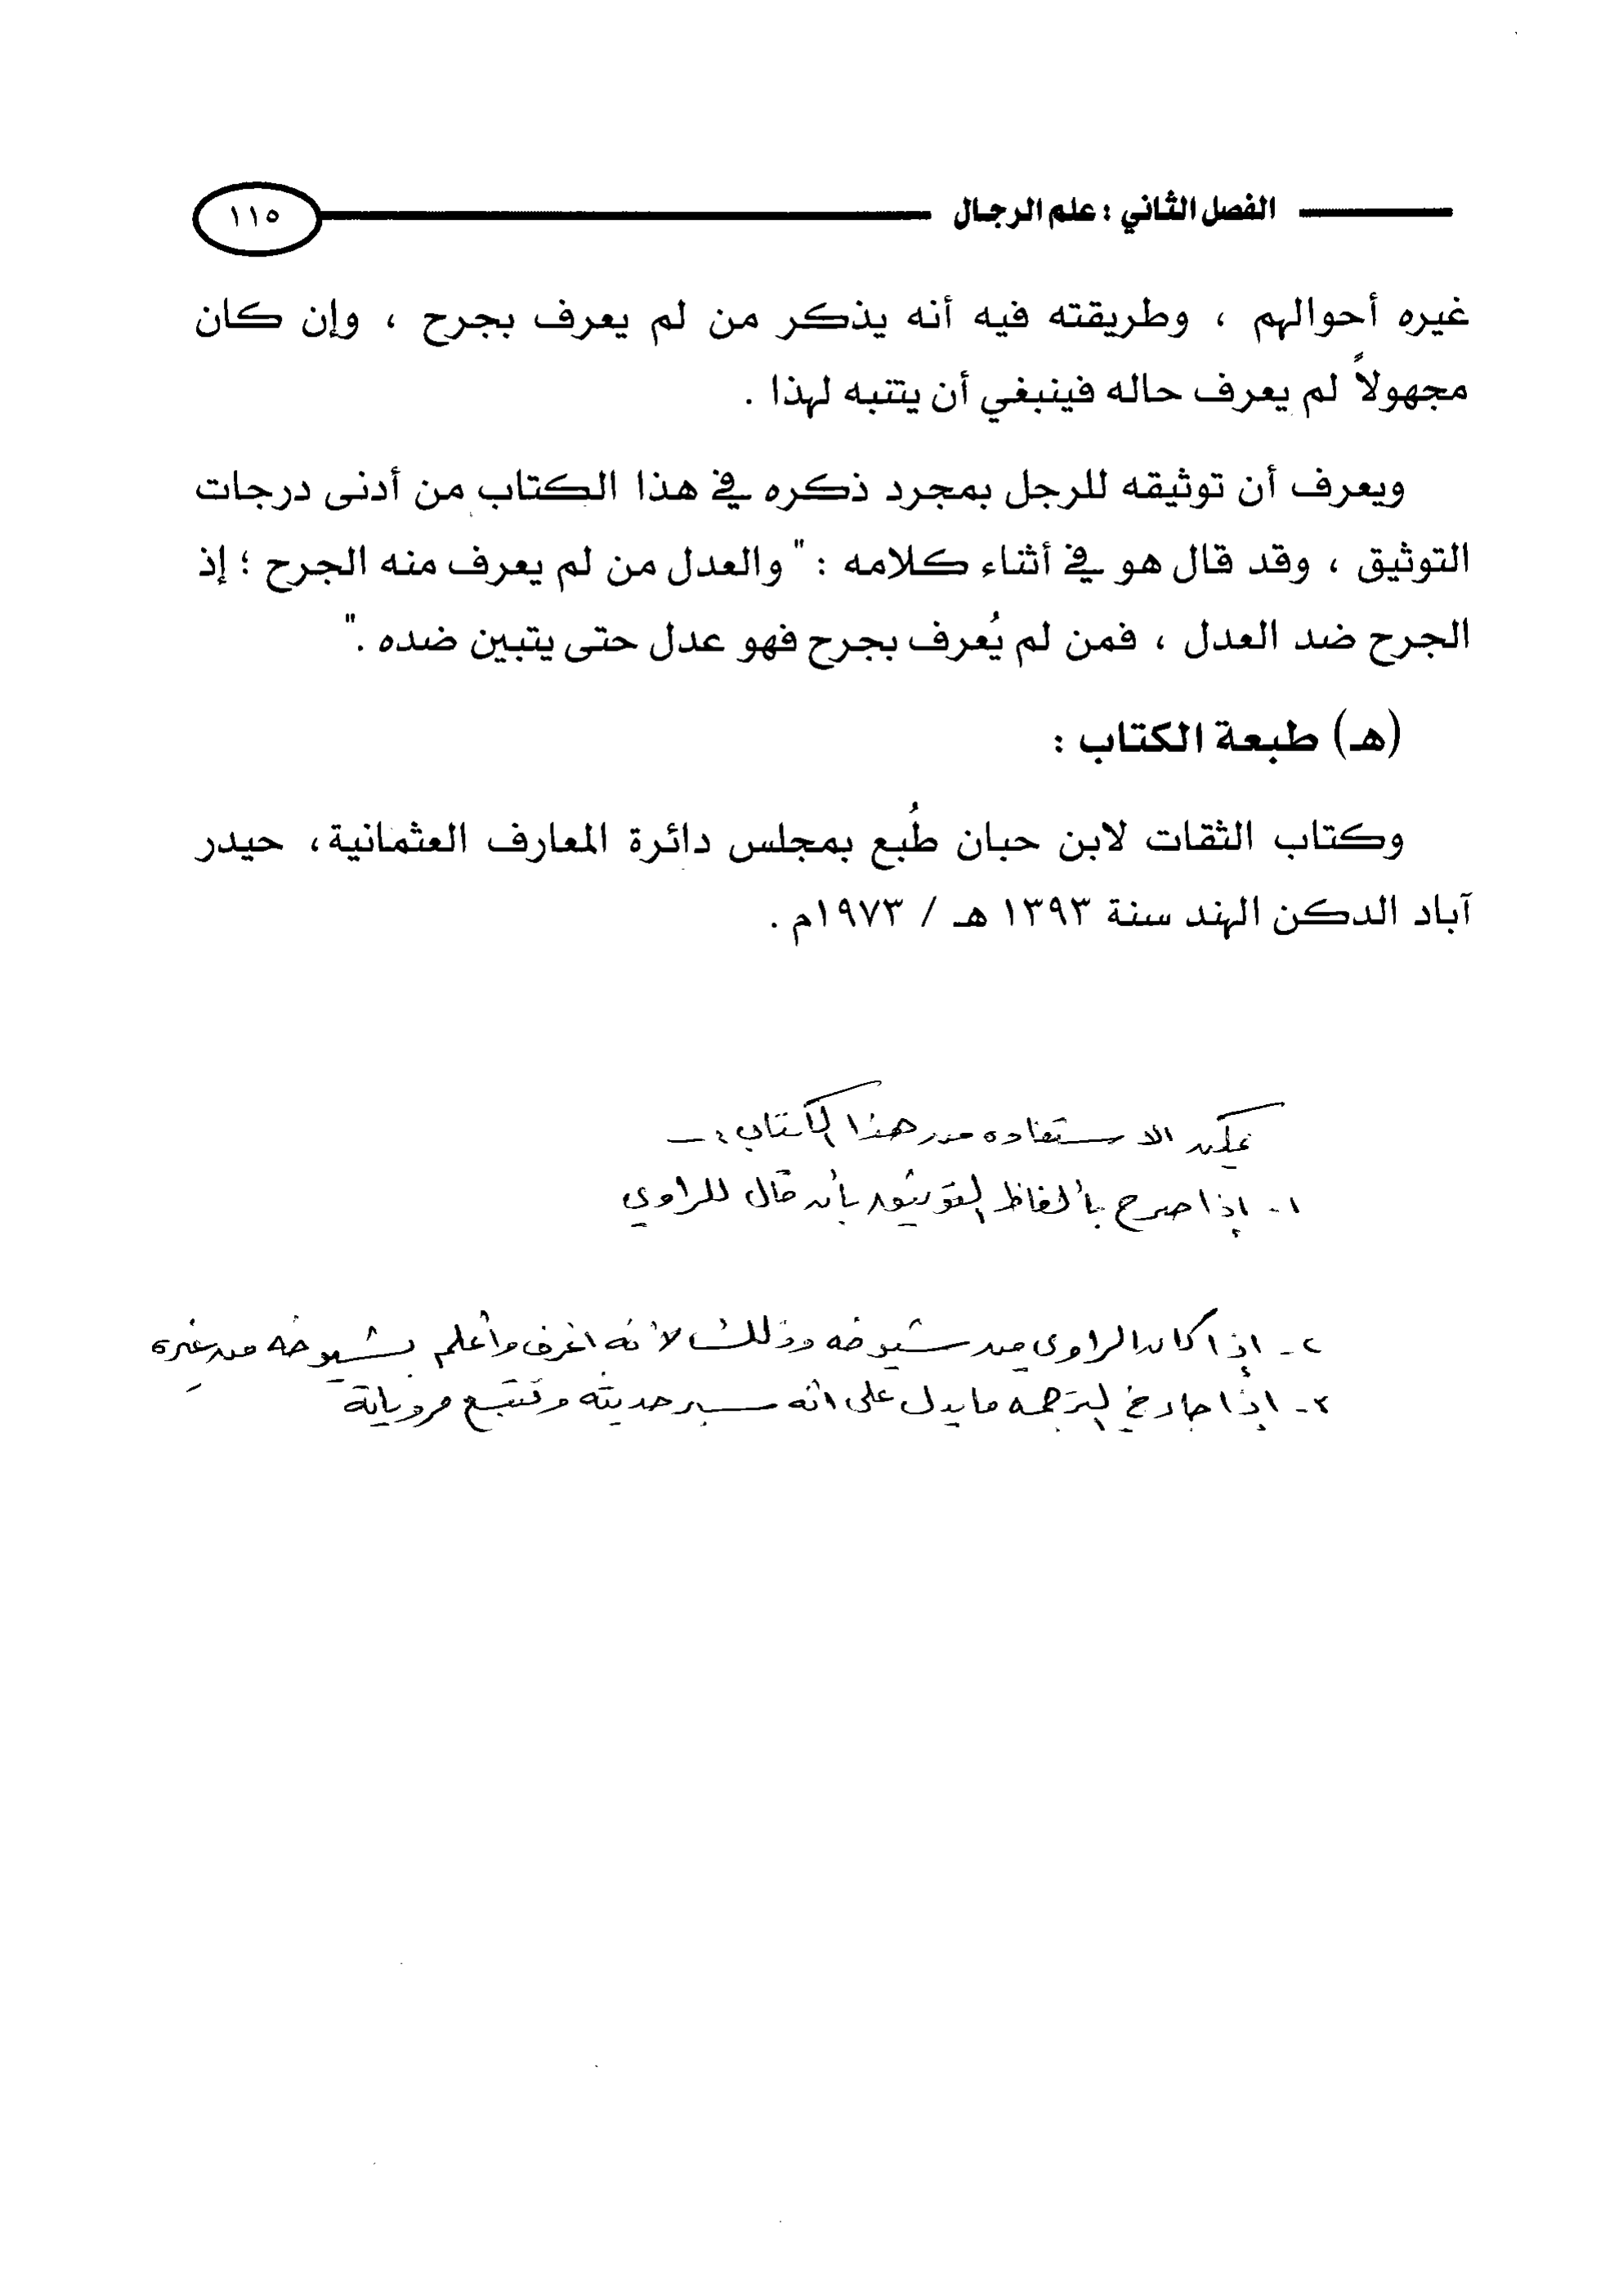 الفصل الثاني : علم الرجال ١١٥
غيره أحوالهم ، وطريقته فيه أنه يذكر من لم يعرف بجرح ، وإن كان
مجهولاً لم يعرف حاله فينبغي أن يتنبه لهذا .
ويعرف أن توثيقه للرجل بمجرد ذكره في هذا الكتاب من أدنى درجات
التوثيق ، وقد قال هو في أثناء كلامه : " والعدل من لم يعرف منه الجرح ؛ إذ
الجرح ضد العدل ، فمن لم يُعرف بجرح فهو عدل حتى يتبين ضده ."
(هـ) طبعة الكتاب :
وكتاب الثقات لابن حبان طُبع بمجلس دائرة المعارف العثمانية، حيدر
آباد الدكن الهند سنة ١٣٩٣ هـ / ١٩٧٣م .
يمكن الاستفاده من هذا الكتاب :-
١- إذا صرح بألفاظ التوثيق بأن قال للراوي
٢- إذا كان الراوي من شيوخه وذلك لأنه اعرف وأعلم بشيوخه من غيره
٣- إذا جاء في الترجمه ما يدل على انه سبر حديثه وتتبع مروياته